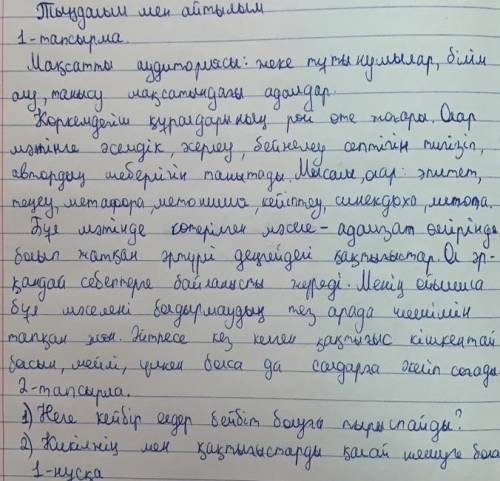 Тыңдалым мен айтылым
1-тапсырма.
Мақсатты аудиториясы: жеке тұтынушылар, білім
алу, танысу мақсатындағы адамдар.
Көркемдегіш құралдарының рөлі өте жоғары. Олар
мәтінге әсемдік, әрлеу, бейнелеу септігін тигізіп,
автордың шеберлігін танытады. Мысалы, олар: эпитет,
теңеу, метафора, метонимия, кейіптеу, синекдоха, литота.
Бұл мәтінде көтерілген мәселе - адамзат өмірінде
болып жатқан әртүрлі деңгейдегі қақтығыстар. Ол әр-
қандай себептерге байланысты жүреді. Менің ойымша
бұл мәселені болдырмаудың тез арада шешімін
тапқан жөн. Әйтпесе кез келген қақтығыс кішкентай
болсын, мейлі, үлкен болса да салдарға әкеліп соғады
2-тапсырма.
1) Неге кейбір елдер бейбіт болуға тырыспайды?
2) Жікіншің мен қақтығыстарды қалай шешуге бола
1-нұсқа